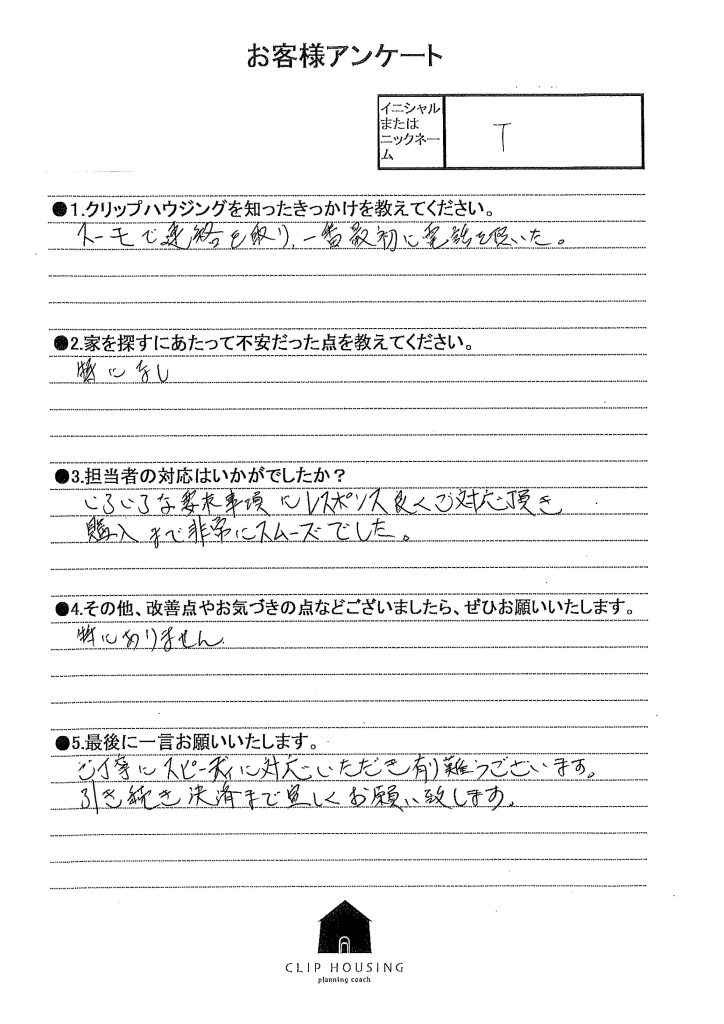 お客様アンケート
イニシャル
または
ニックネー
ム
T
●1.クリップハウジングを知ったきっかけを教えてください。
スーモで連絡を取り、一番最初に電話を頂いた。
●2.家を探すにあたって不安だった点を教えてください。
特になし
●3.担当者の対応はいかがでしたか？
いろいろな要求事項にレスポンス良くご対応頂き
購入まで非常にスムーズでした。
●4.その他、改善点やお気づきの点などございましたら、ぜひお願いいたします。
特にありません
●5.最後に一言お願いいたします。
ご丁寧にスピーディに対応いただき有り難うございます。
引き続き決済まで宜しくお願い致します。
CLIP HOUSING
planning coach